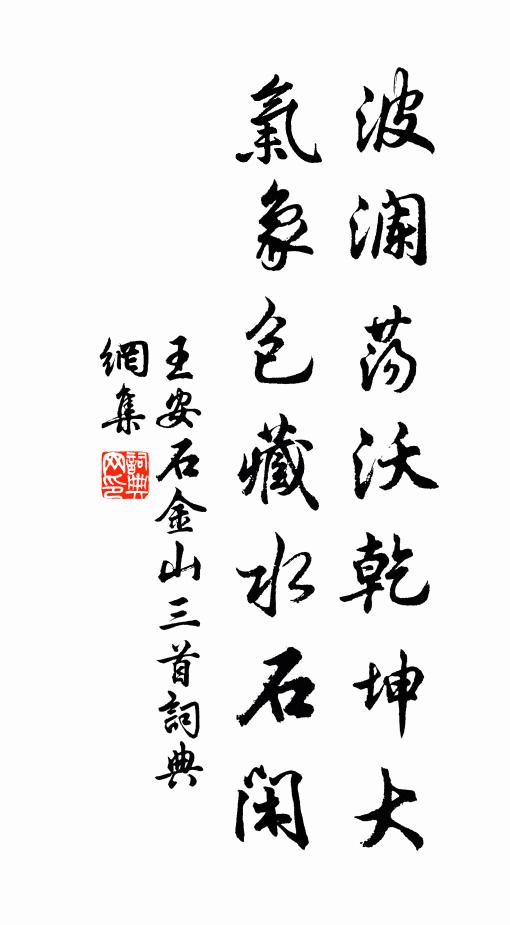 波瀾蕩沃乾坤大
氣象包藏水石閑
王安石金山三首詞典
網集
詞典網印